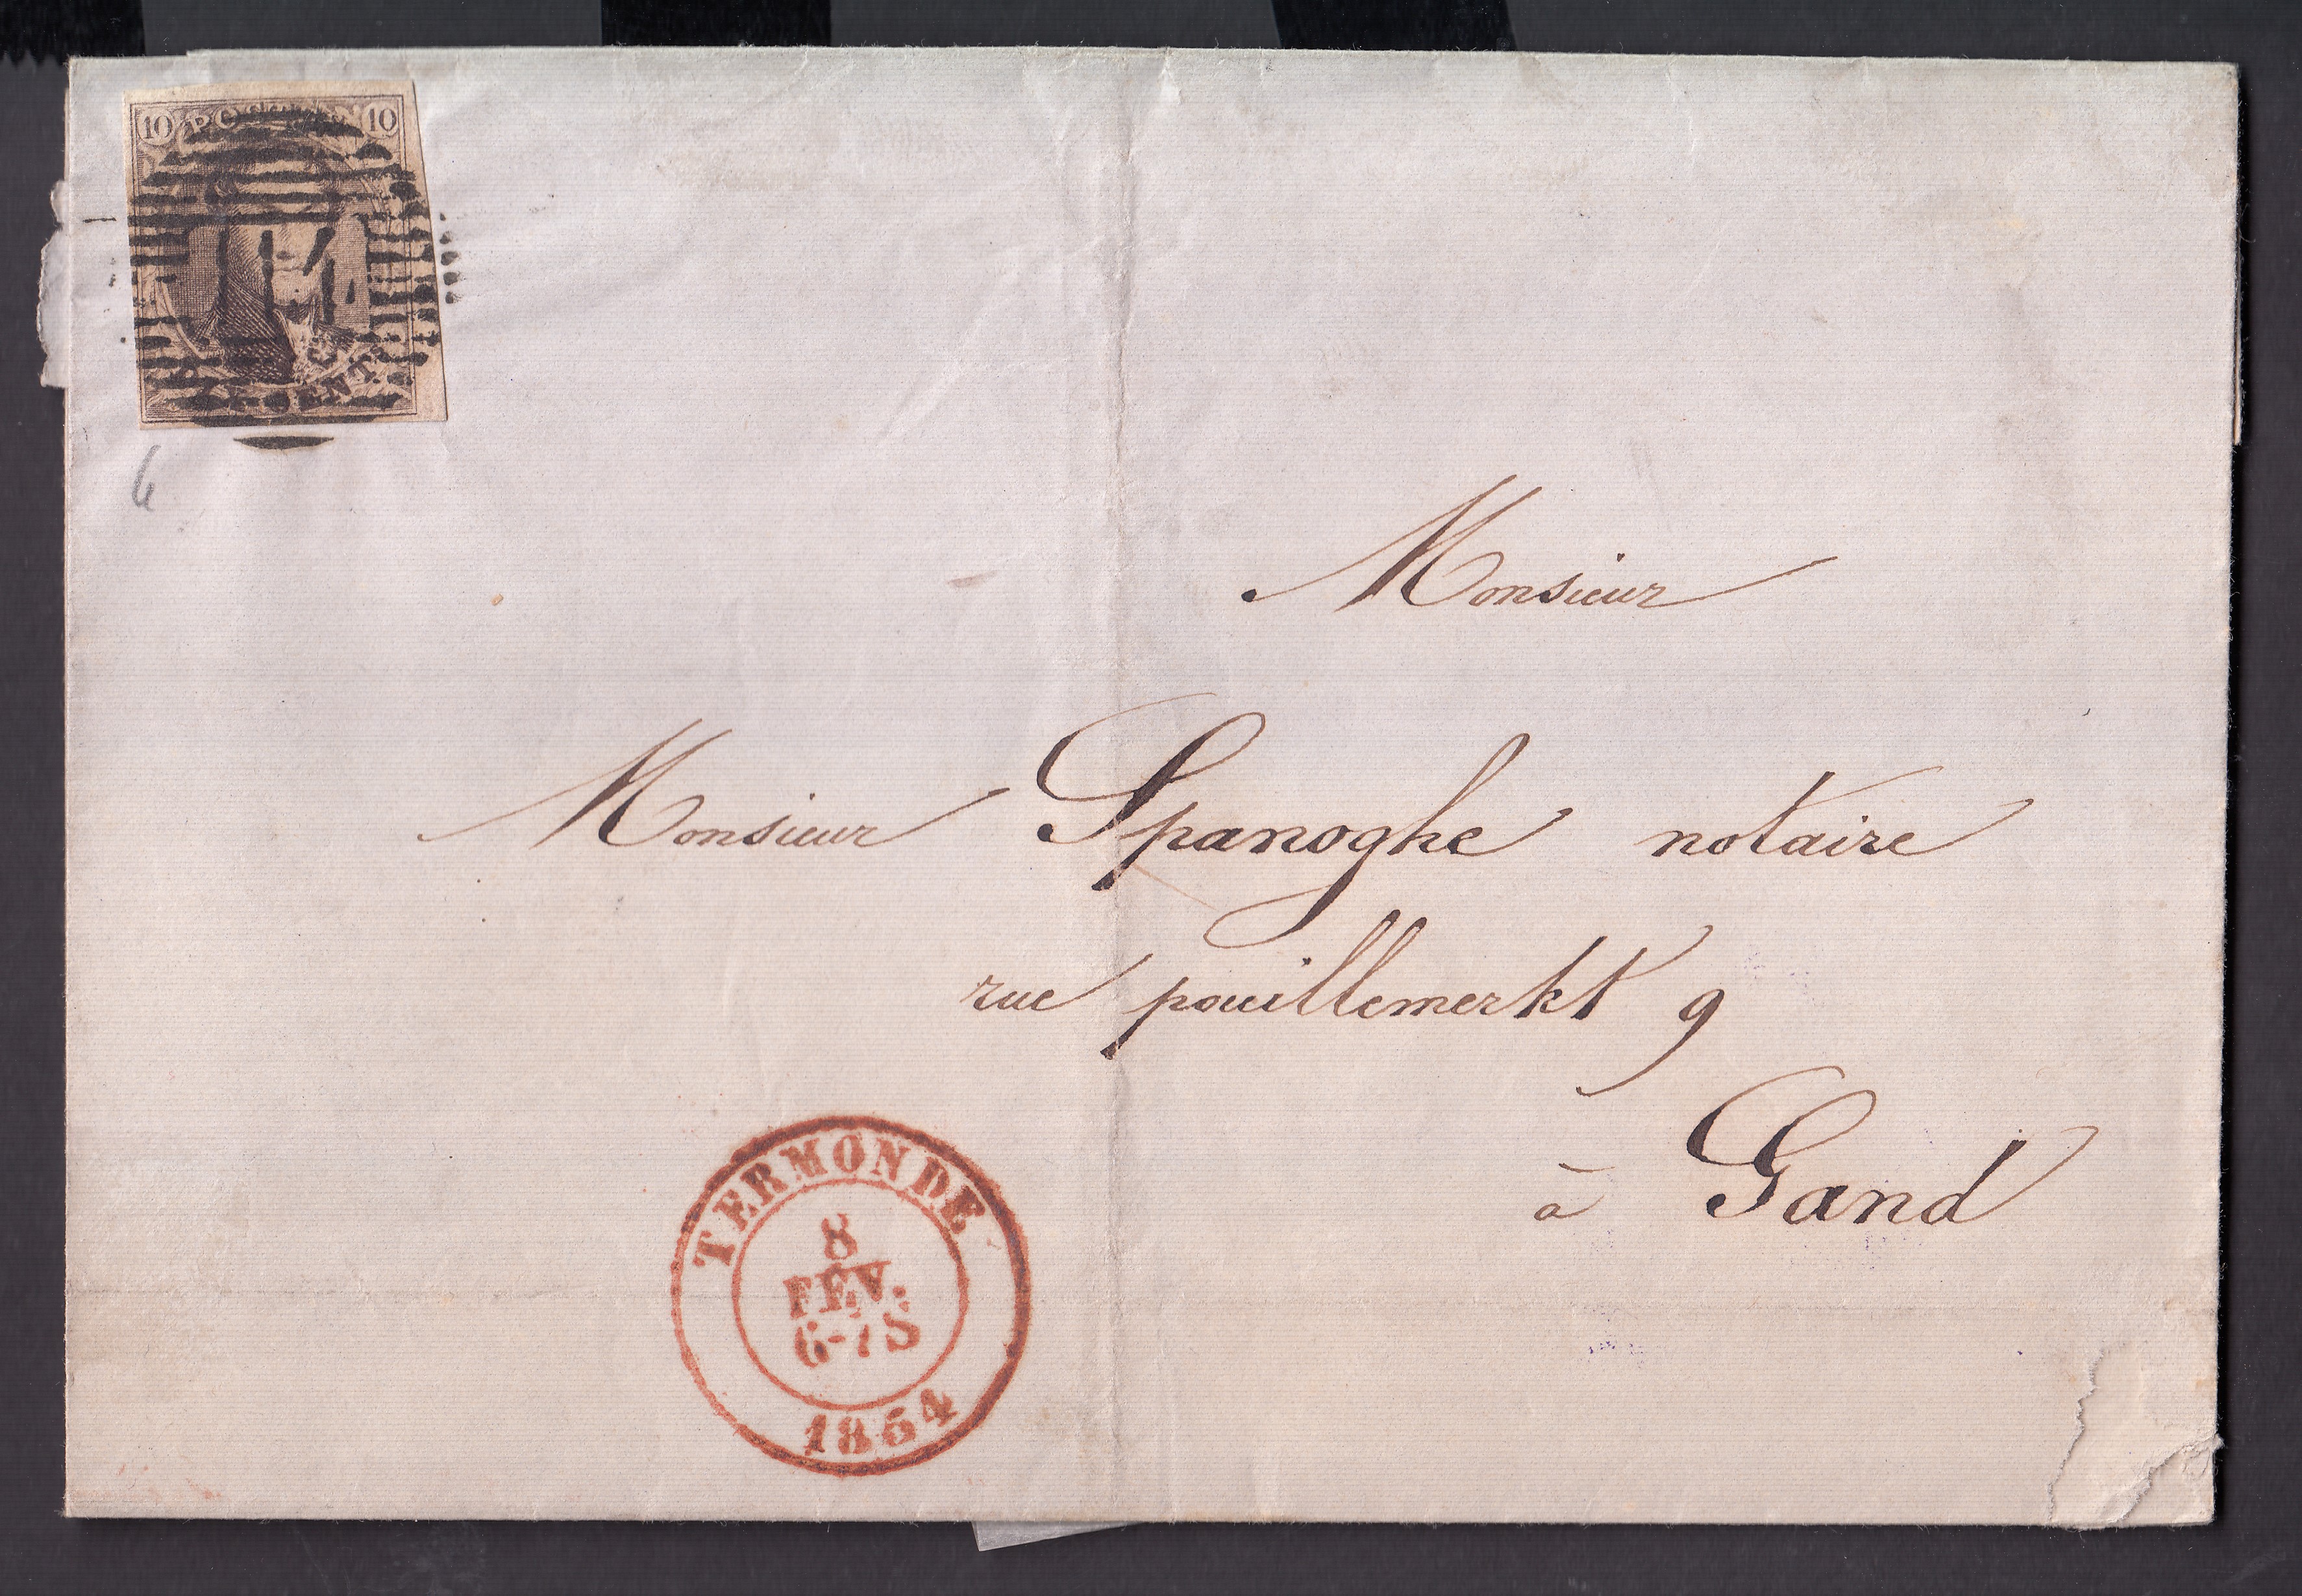 10 10
CENT.
6
Monsieur
Monsieur Spanoghe notaire
rue pouillemerkt 9
à Gand
TERMONDE
8
FÉV.
6-7 S
1854